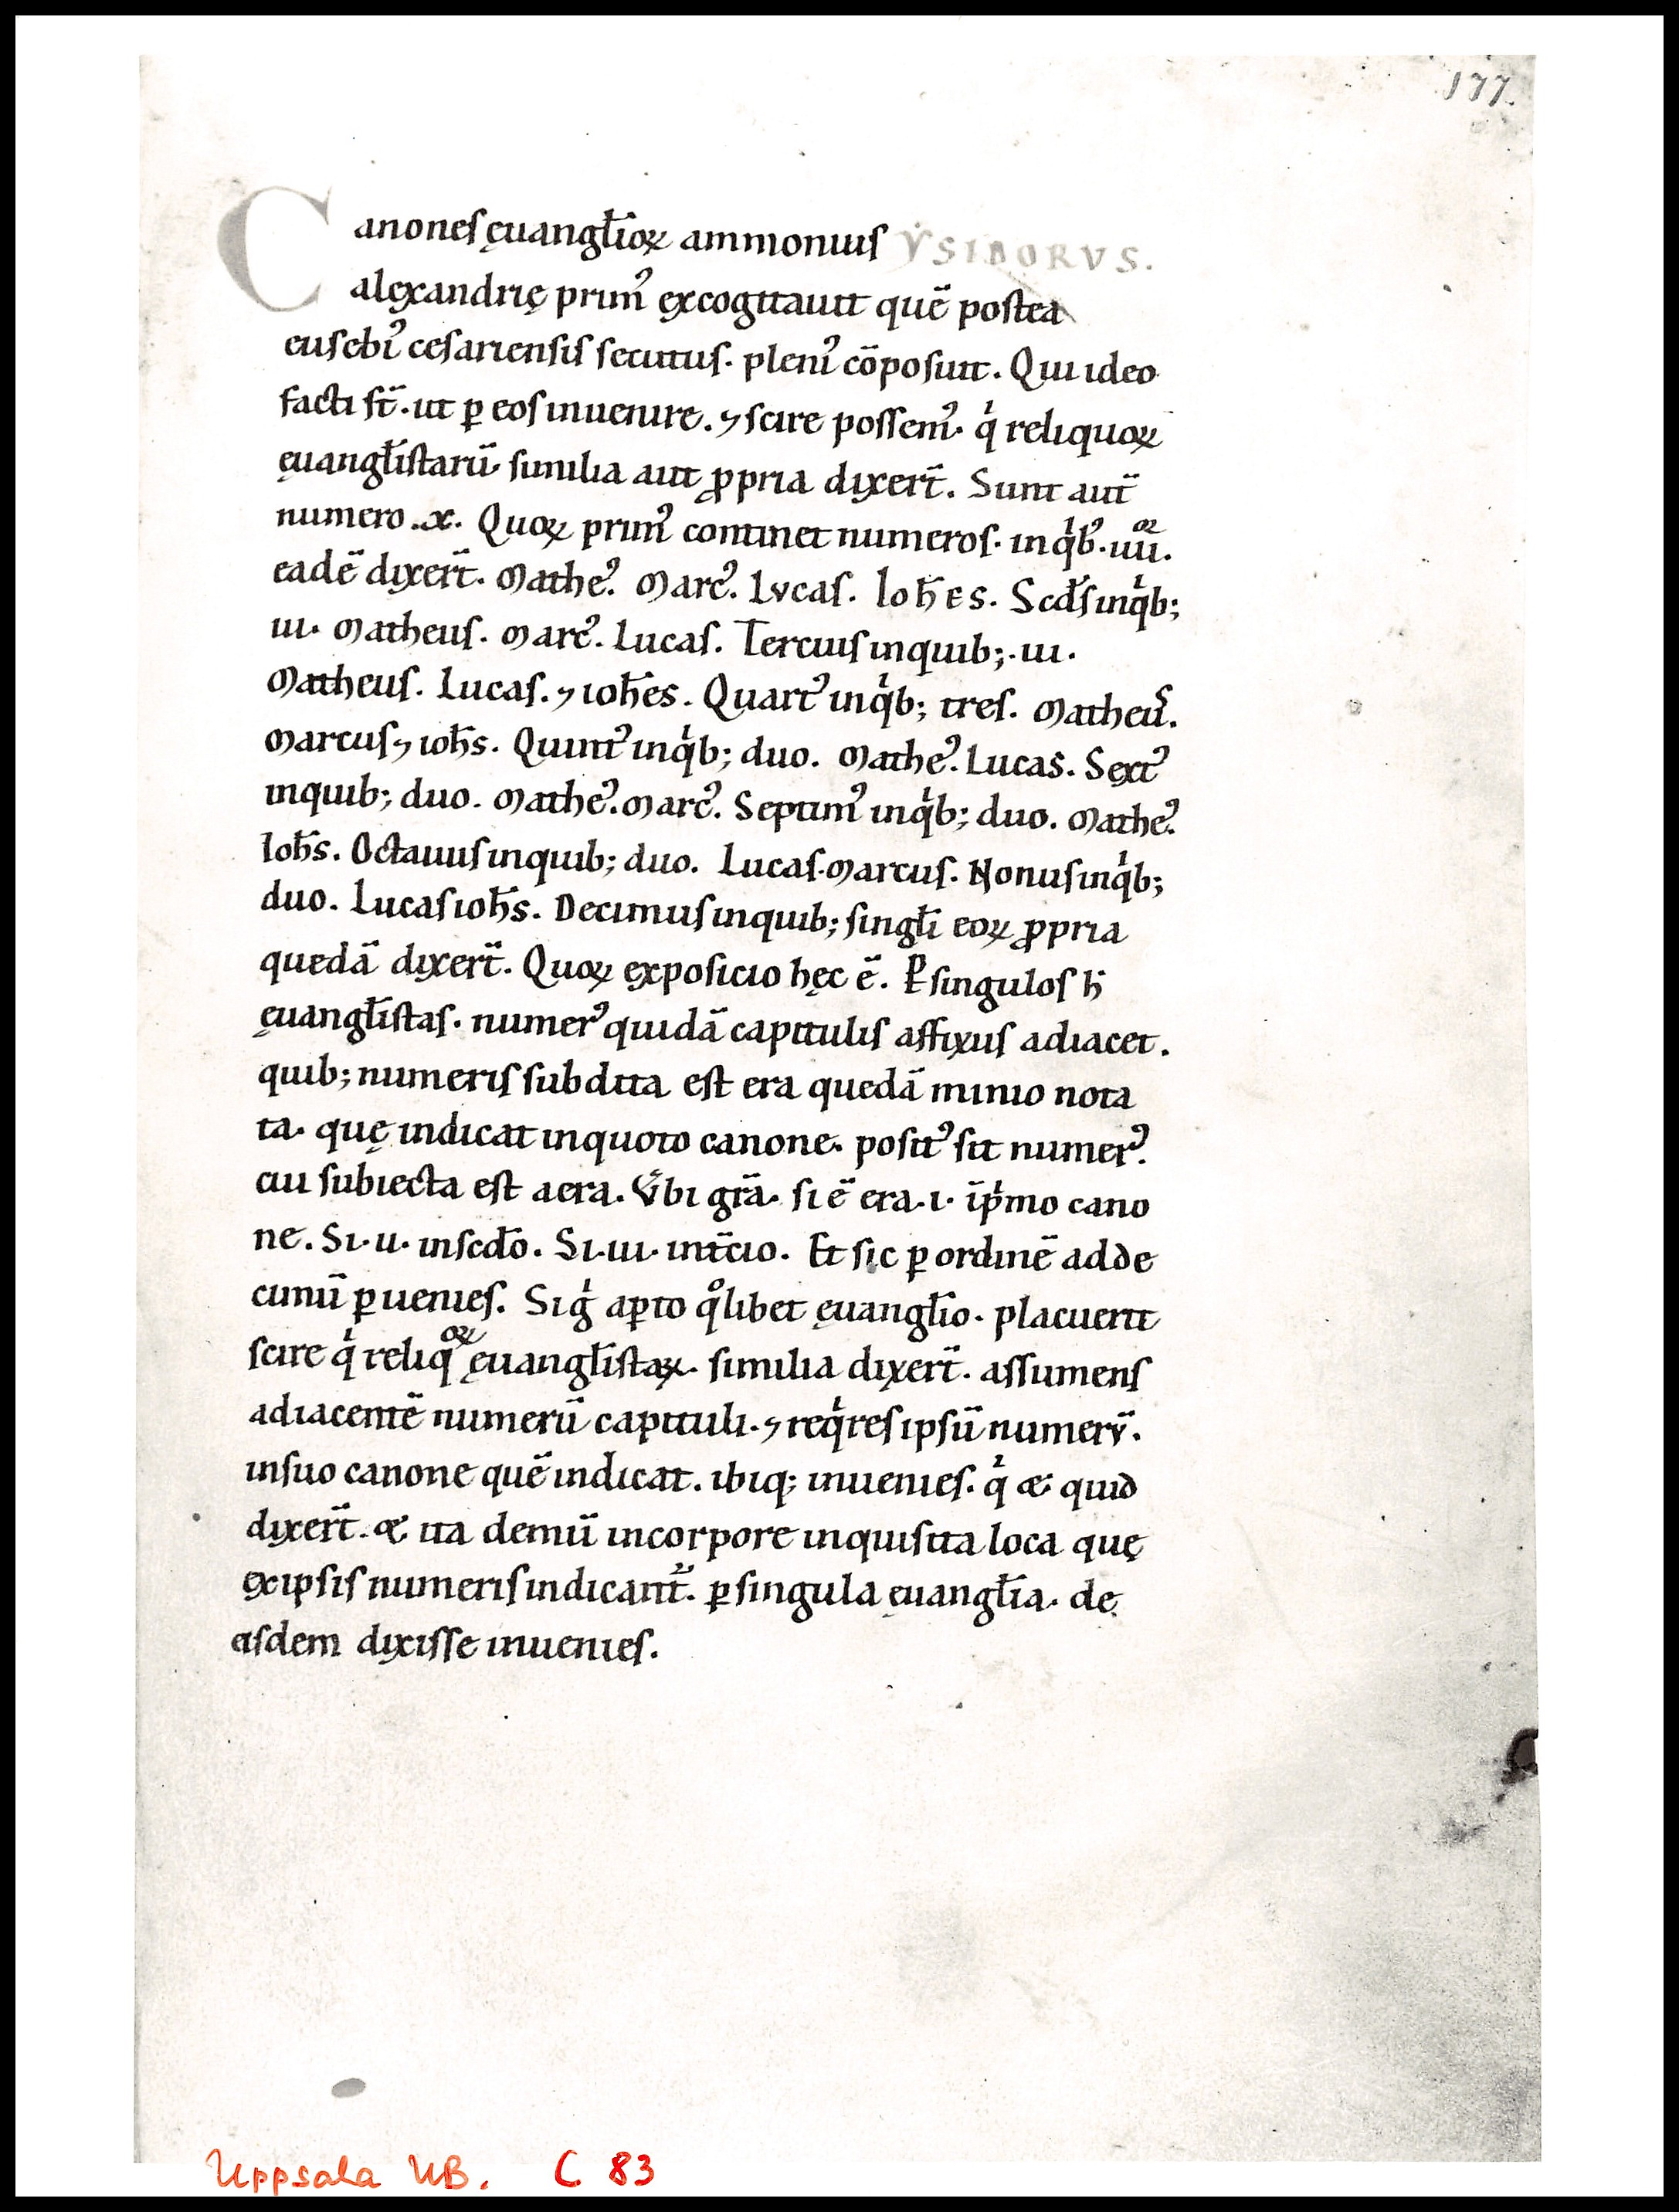 177.
Canoneſ ęuangl̄ioꝝ ammoniuſ ẎSIDORVS.
alexandrię prim᾿ excogitauit quē postea
euſebi᾿ ceſarienſiſ ſecutuſ. pleni᾿ cōpoſuit. Qui ideo
facti ſt̄. ut ꝑ eoſ inuenire. ⁊ ſcire poſſem᾿. qͥ reliquoꝝ
ęuangl̄iſtarū ſimilia aut ꝓpria dixert̄. Sunt aut̄
numero .x. Quoꝝ prim᾿ continet numeroſ. in qͥb᾿. iiii.or
eadē dixert̄. Mathe᾿. Marc᾿. Lvcaſ. Ioh̄es. Scd̄ſ in qͥb;
iii. Matheuſ. Marc᾿. Lucaſ. Terciuſ in quib; .iii.
Matheuſ. Lucaſ. ⁊ ioh̄es. Quart᾿ in qͥb; treſ. Matheuſ.
Marcuſ ⁊ ioh̄s. Quint᾿ in qͥb; duo. Mathe᾿. Lucas. Sext᾿
in quib; duo. Mathe᾿. Marc᾿. Septim᾿ in qͥb; duo. Mathe᾿.
Ioh̄s. Octauuſ in quib; duo. Lucaſ. Marcuſ. Nonuſ in qͥb;
duo. Lucaſ ioh̄s. Decimuſ in quib; ſingl̄i eoꝝ ꝓpria
quedā dixert̄. Quoꝝ expoſicio hęc ē. Ꝑ ſinguloſ h̄
ęuangl̄iſtaſ. numer᾿ quidā capituliſ affixuſ adiacet.
quib; numeriſ ſubdita eſt era quedā minio nota
ta. quę indicat in quoto canone. poſit᾿ ſit numer᾿.
cui ſubiecta eſt aera. Vͤbi grā. ſi ē era .i. ī pͥmo cano
ne. Si .ii. in ſcd̄o. Si .iii. in t̄cio. Et ſic ꝑ ordinē ad de
cimū ꝑuenieſ. Si gͥ aꝑto qͦlibet ęuangl̄io. placuerit
ſcire qͥ reliqoꝝ ęuangl̄iſtaꝝ. ſimilia dixert̄. aſſumenſ
adiacentē numerū capituli. ⁊ reqͥreſ ipſū numerv̄.
in ſuo canone quē indicat. ibiq; inuenieſ. qͥ & quid
dixert̄. & ita demū in corpore inquiſita loca quę
ex ipſiſ numeriſ indicant᷑. ꝑ ſingula ęuangl̄ia. de
eiſdem dixiſſe inuenieſ.
Uppsala UB. C 83